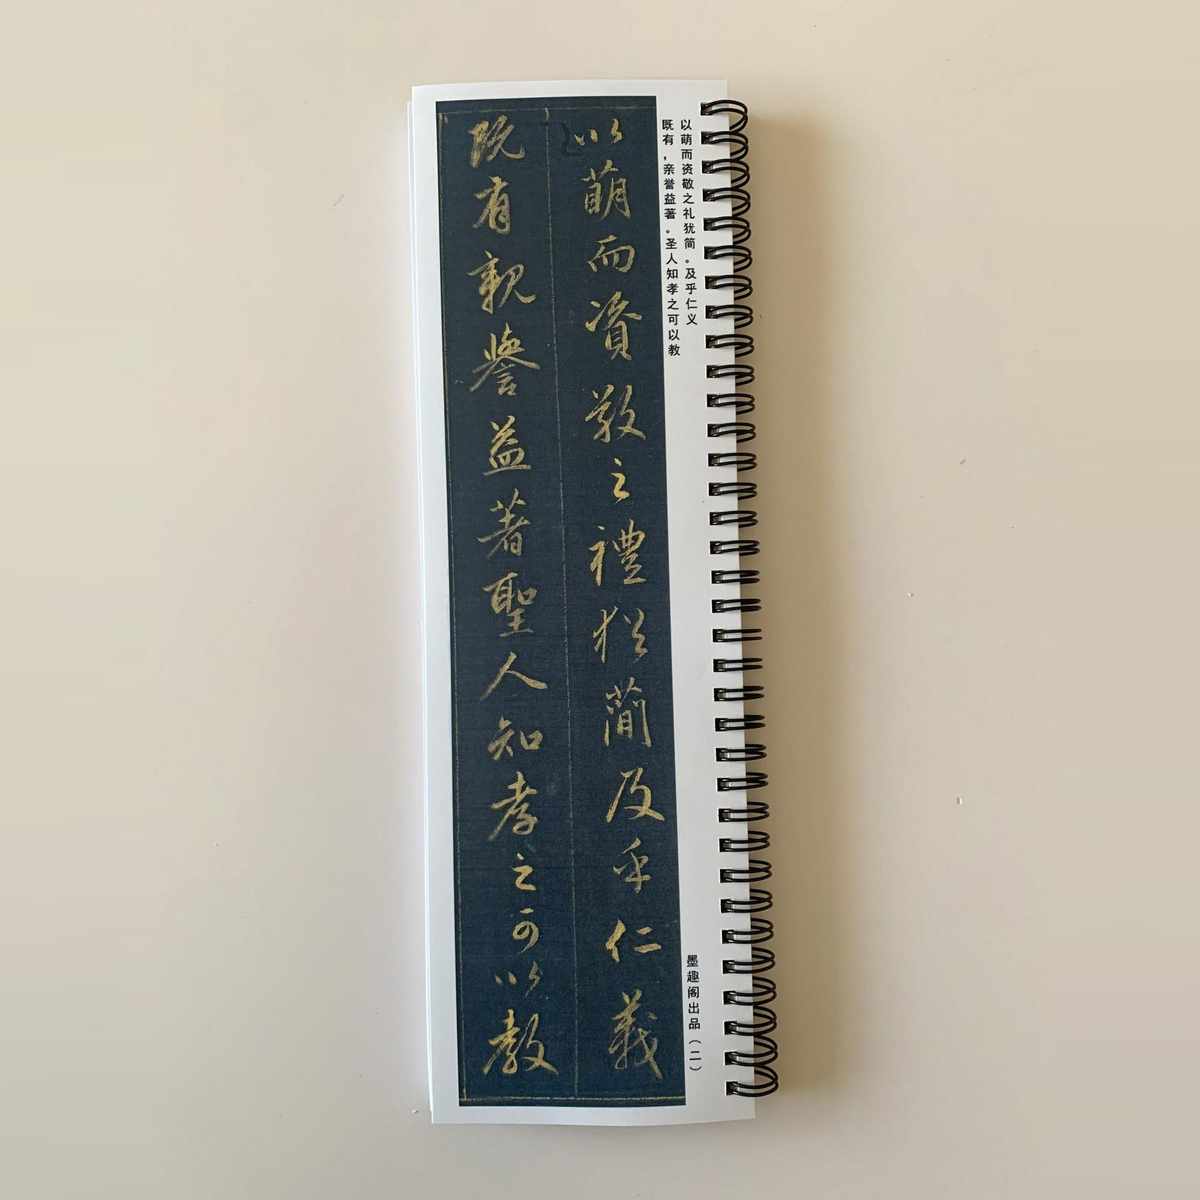 以萌而资敬之礼犹简。及乎仁义
既有，亲誉益著。圣人知孝之可以教
以萌而資敬之禮猶蕳及乎仁義
既有親譽益著聖人知孝之可以教
墨趣阁出品（二）